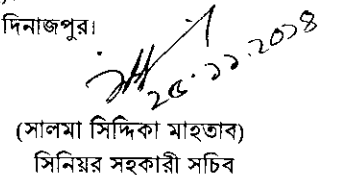 দিনাজপুর।
২৫.১১.২০১৪
(সালমা সিদ্দিকা মাহতাব)
সিনিয়র সহকারী সচিব